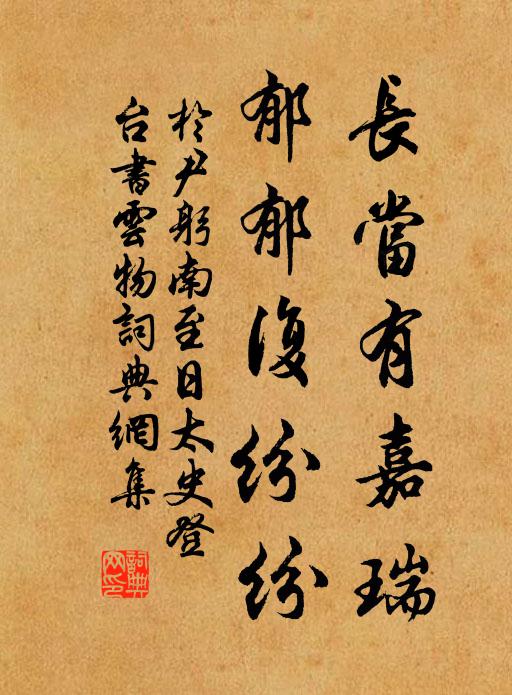 長當有嘉瑞
郁郁復紛紛
於尹躬南至日太史登
台書雲物詞典網集
詞典
网印